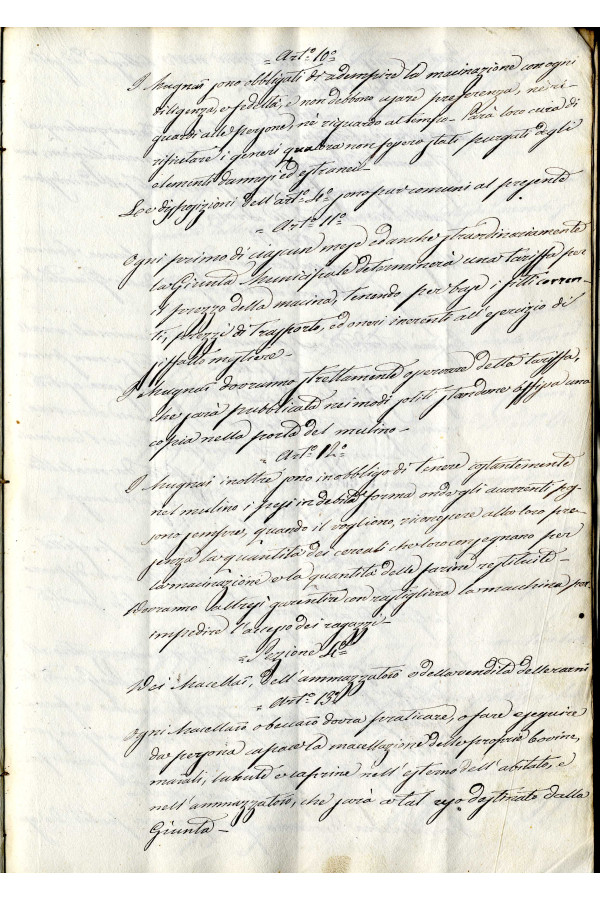 = Art.° 10°
I Mugnai sono obbligati di adempire la macinazione con ogni
diligenza, e fedeltà, e non debbono usare preferenza, nè ri-
guardi alle persone, nè riguardo al tempo - Sarà loro cura di
rifiutare i generi qualora non fossero stati purgati dagli
elementi dannosi ed estranei -
Le disposizioni dell'art.° 4° sono pur comuni al presente
= Art.° 11°
Ogni primo di ciascun mese ed anche straordinariamente
la Giunta Municipale determinerà una tariffa per
il prezzo della macina, tenendo per base i fitti corren-
ti, prezzi di trasporto, ed oneri inerenti all'esercizio di
siffatto mestiere -
I Mugnai dovranno strettamente osservare detta tariffa,
che sarà pubblicata nei modi soliti standone affissa una
copia nella porta del mulino -
= Art.° 12°
I Mugnai inoltre sono in obbligo di tenere costantemente
nel mulino i pesi in debita forma onde gli accorrenti pos-
sono sempre, quando il vogliono, riconoscere alla loro pre-
senza la quantità dei cereali che loro consegnano per
la macinazione e la quantità delle farine restituite -
Dovranno altresì garentire con rastigliera la macchina per
impedire l'accesso dei ragazzi -
= Sezione 4ª
Dei Macellai, dell'ammazzatoio e della vendita delle carni
= Art.° 13°
Ogni Macellaio o beccaio dovrà praticare, o fare eseguire
da persona capace la macellazione delle proprie bovine,
maiali, lanute e caprine nell'esterno dell'abitato, e
nell'ammazzatoio, che sarà a tal uso destinato dalla
Giunta -